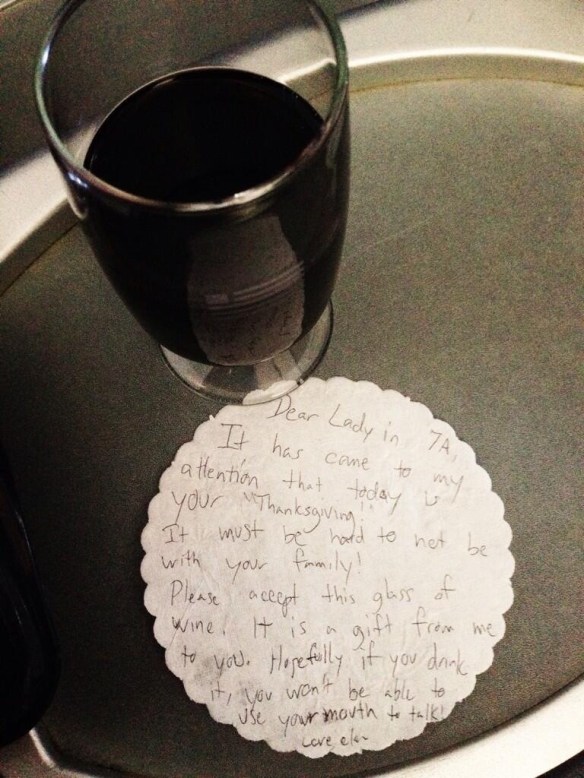 Dear Lady in 7A,
It has come to my
attention that today is
your "Thanksgiving!"
It must be hard to not be
with your family!
Please accept this glass of
wine. It is a gift from me
to you. Hopefully if you drink
it, you won't be able to
use your mouth to talk!
Love, elan